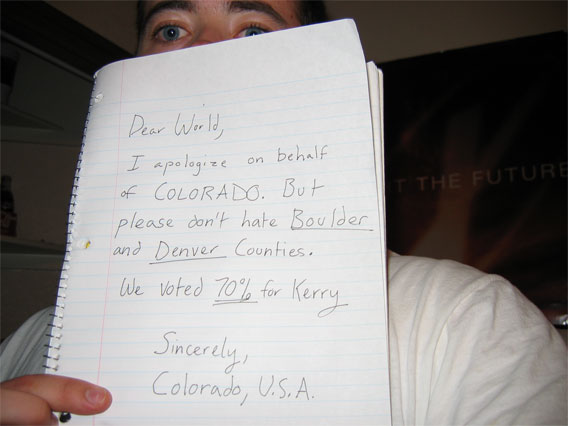 Dear World,
I apologize on behalf
of COLORADO. But
please don't hate Boulder
and Denver Counties.
We voted 70% for Kerry
Sincerely,
Colorado, U.S.A.
THE FUTURE